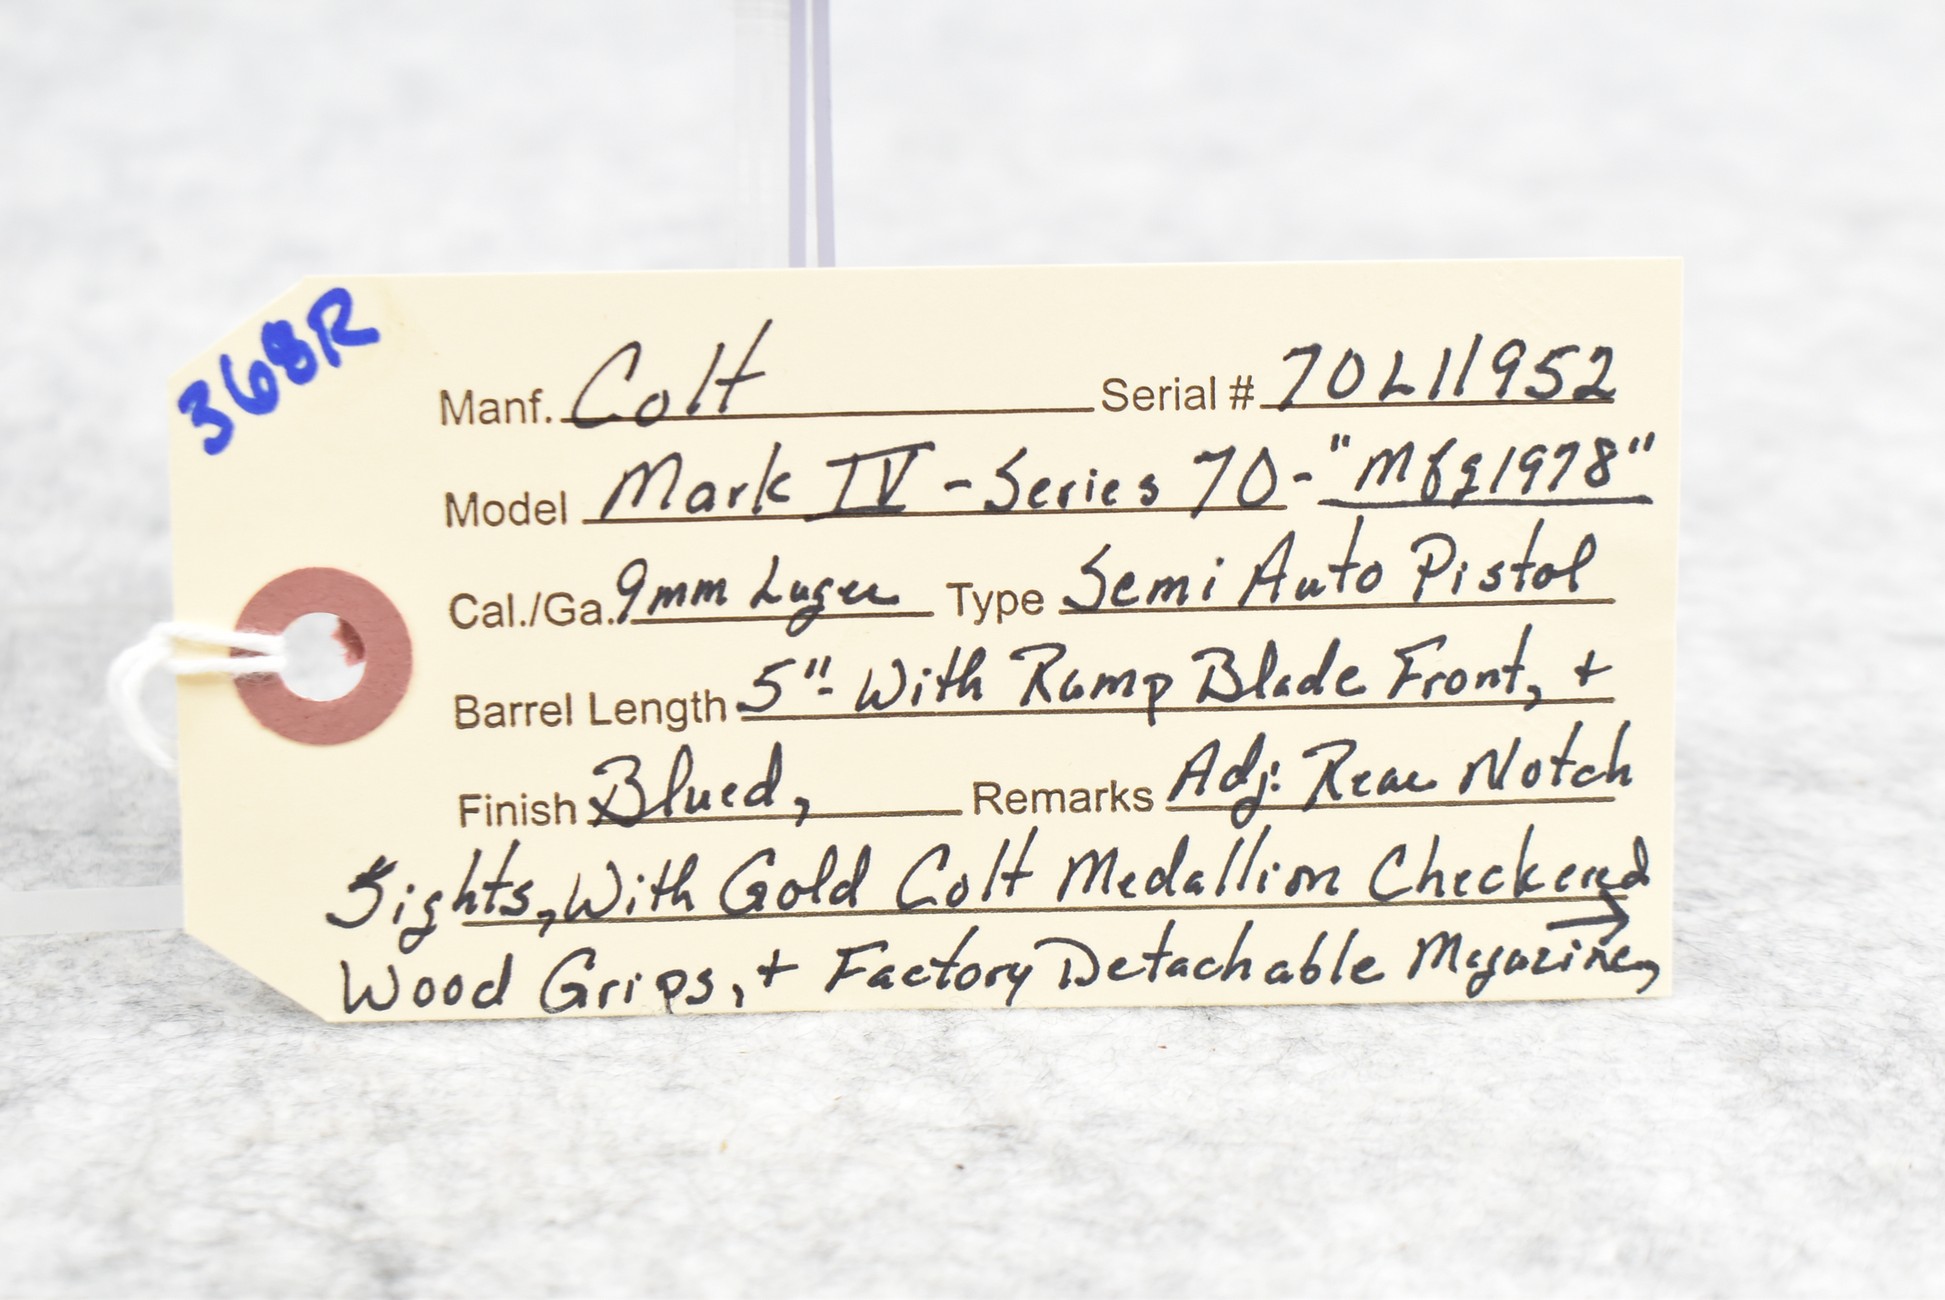 368R
Manf. Colt Serial # 70L11952
Model Mark IV - Series 70 - "Mfg 1978"
Cal./Ga. 9mm Luger Type Semi Auto Pistol
Barrel Length 5"- With Ramp Blade Front, +
Finish Blued, Remarks Adj: Rear Notch
Sights, With Gold Colt Medallion Checkered
Wood Grips, + Factory Detachable Magazine, →